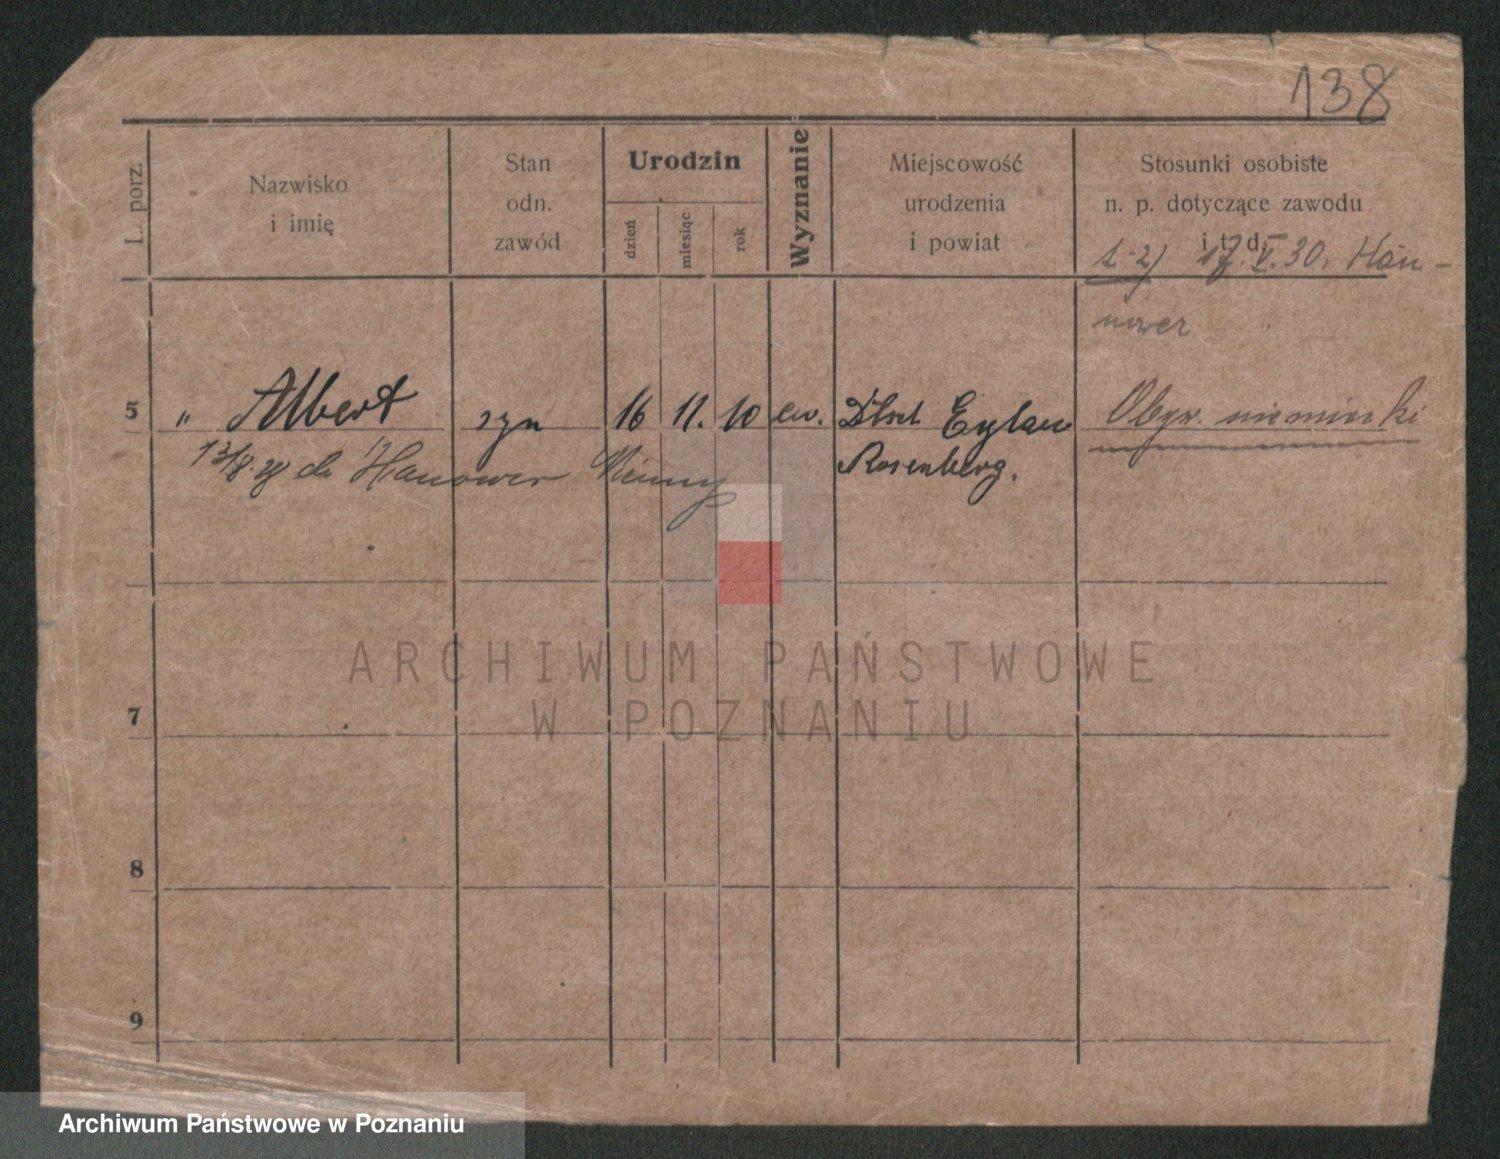 138
L. porz.
Nazwisko
i imię
Stan
odn.
zawód
Urodzin
dzień
miesiąc
rok
Wyznanie
Miejscowość
urodzenia
i powiat
Stosunki osobiste
n. p. dotyczące zawodu
i t. d.
1-2) 17.V.30. Han-
nower
5 " Albert syn 16 11. 10 ew. Dtsch Eylau Obyw. niemiecki
13/8 28 do Hanower Niemcy Rosenberg.
7
8
9
ARCHIWUM PAŃSTWOWE
W POZNANIU
Archiwum Państwowe w Poznaniu